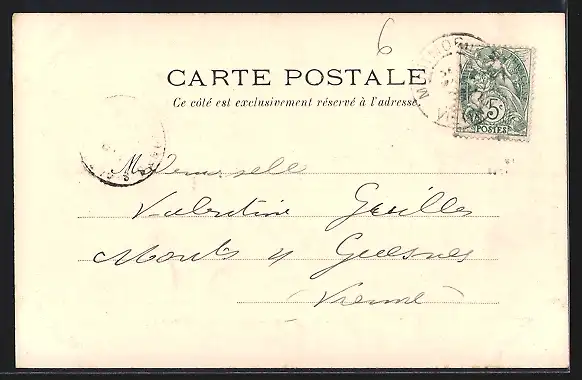 6
CARTE POSTALE
Ce côté est exclusivement réservé à l'adresse.
5c
POSTES
Mademoiselle
Valentine Guilles
Monts s/ Guesnes
(Vienne)